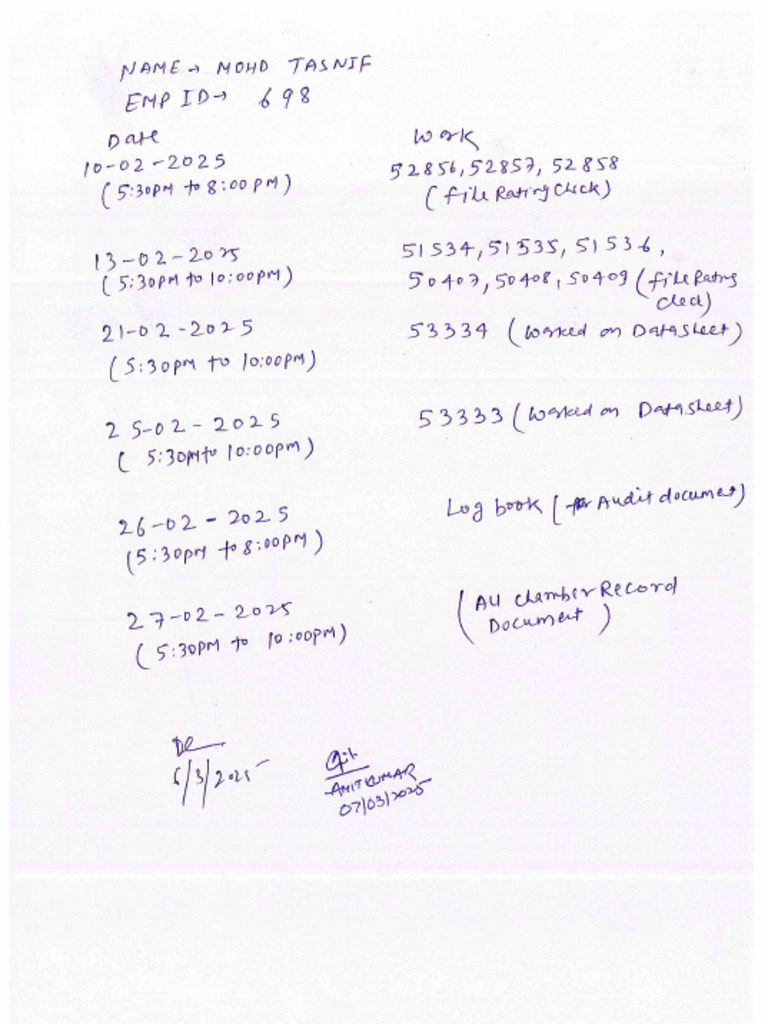 NAME → MOHD TASNIF
EMP ID → 698
Date Work
10-02-2025 52856, 52857, 52858
(5:30PM to 8:00PM) (File Rating Check)
13-02-2025 51534, 51535, 51536,
(5:30PM to 10:00PM) 50407, 50408, 50409 (File Rating
Check)
21-02-2025 53334 (Worked on Datasheet)
(5:30PM to 10:00PM)
25-02-2025 53333 (Worked on Datasheet)
(5:30PM to 10:00PM)
26-02-2025 Log book (for Audit document)
(5:30PM to 8:00PM)
27-02-2025 (All Chamber Record
(5:30PM to 10:00PM) Document)
6/3/2025
AMIT KUMAR
07/03/2025